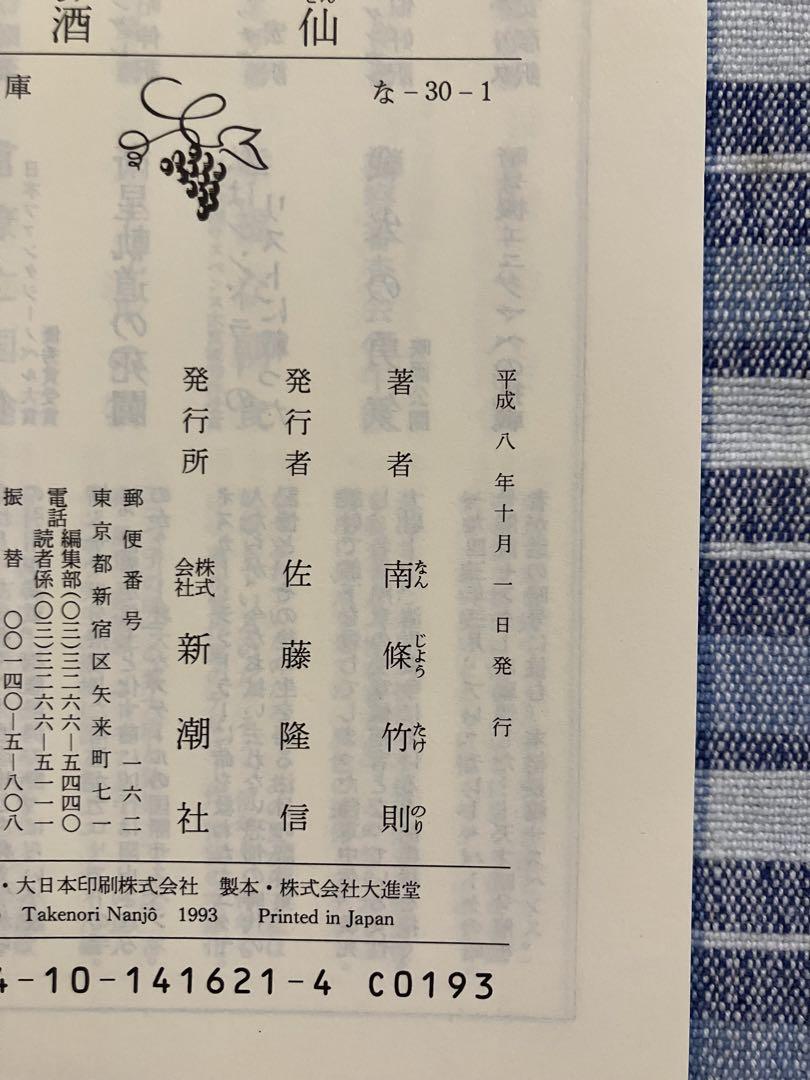 酒仙
庫
な-30-1
平成八年十月一日発行
著者 南條竹則
なんじようたけのり
発行者 佐藤隆信
発行所 株式会社 新潮社
郵便番号 一六二
東京都新宿区矢来町七一
電話 編集部(〇三)三二六六―五四四〇
読者係(〇三)三二六六―五一一一
振替 〇〇一四〇―五―八〇八
・大日本印刷株式会社 製本・株式会社大進堂
Takenori Nanjô 1993 Printed in Japan
4-10-141621-4 C0193